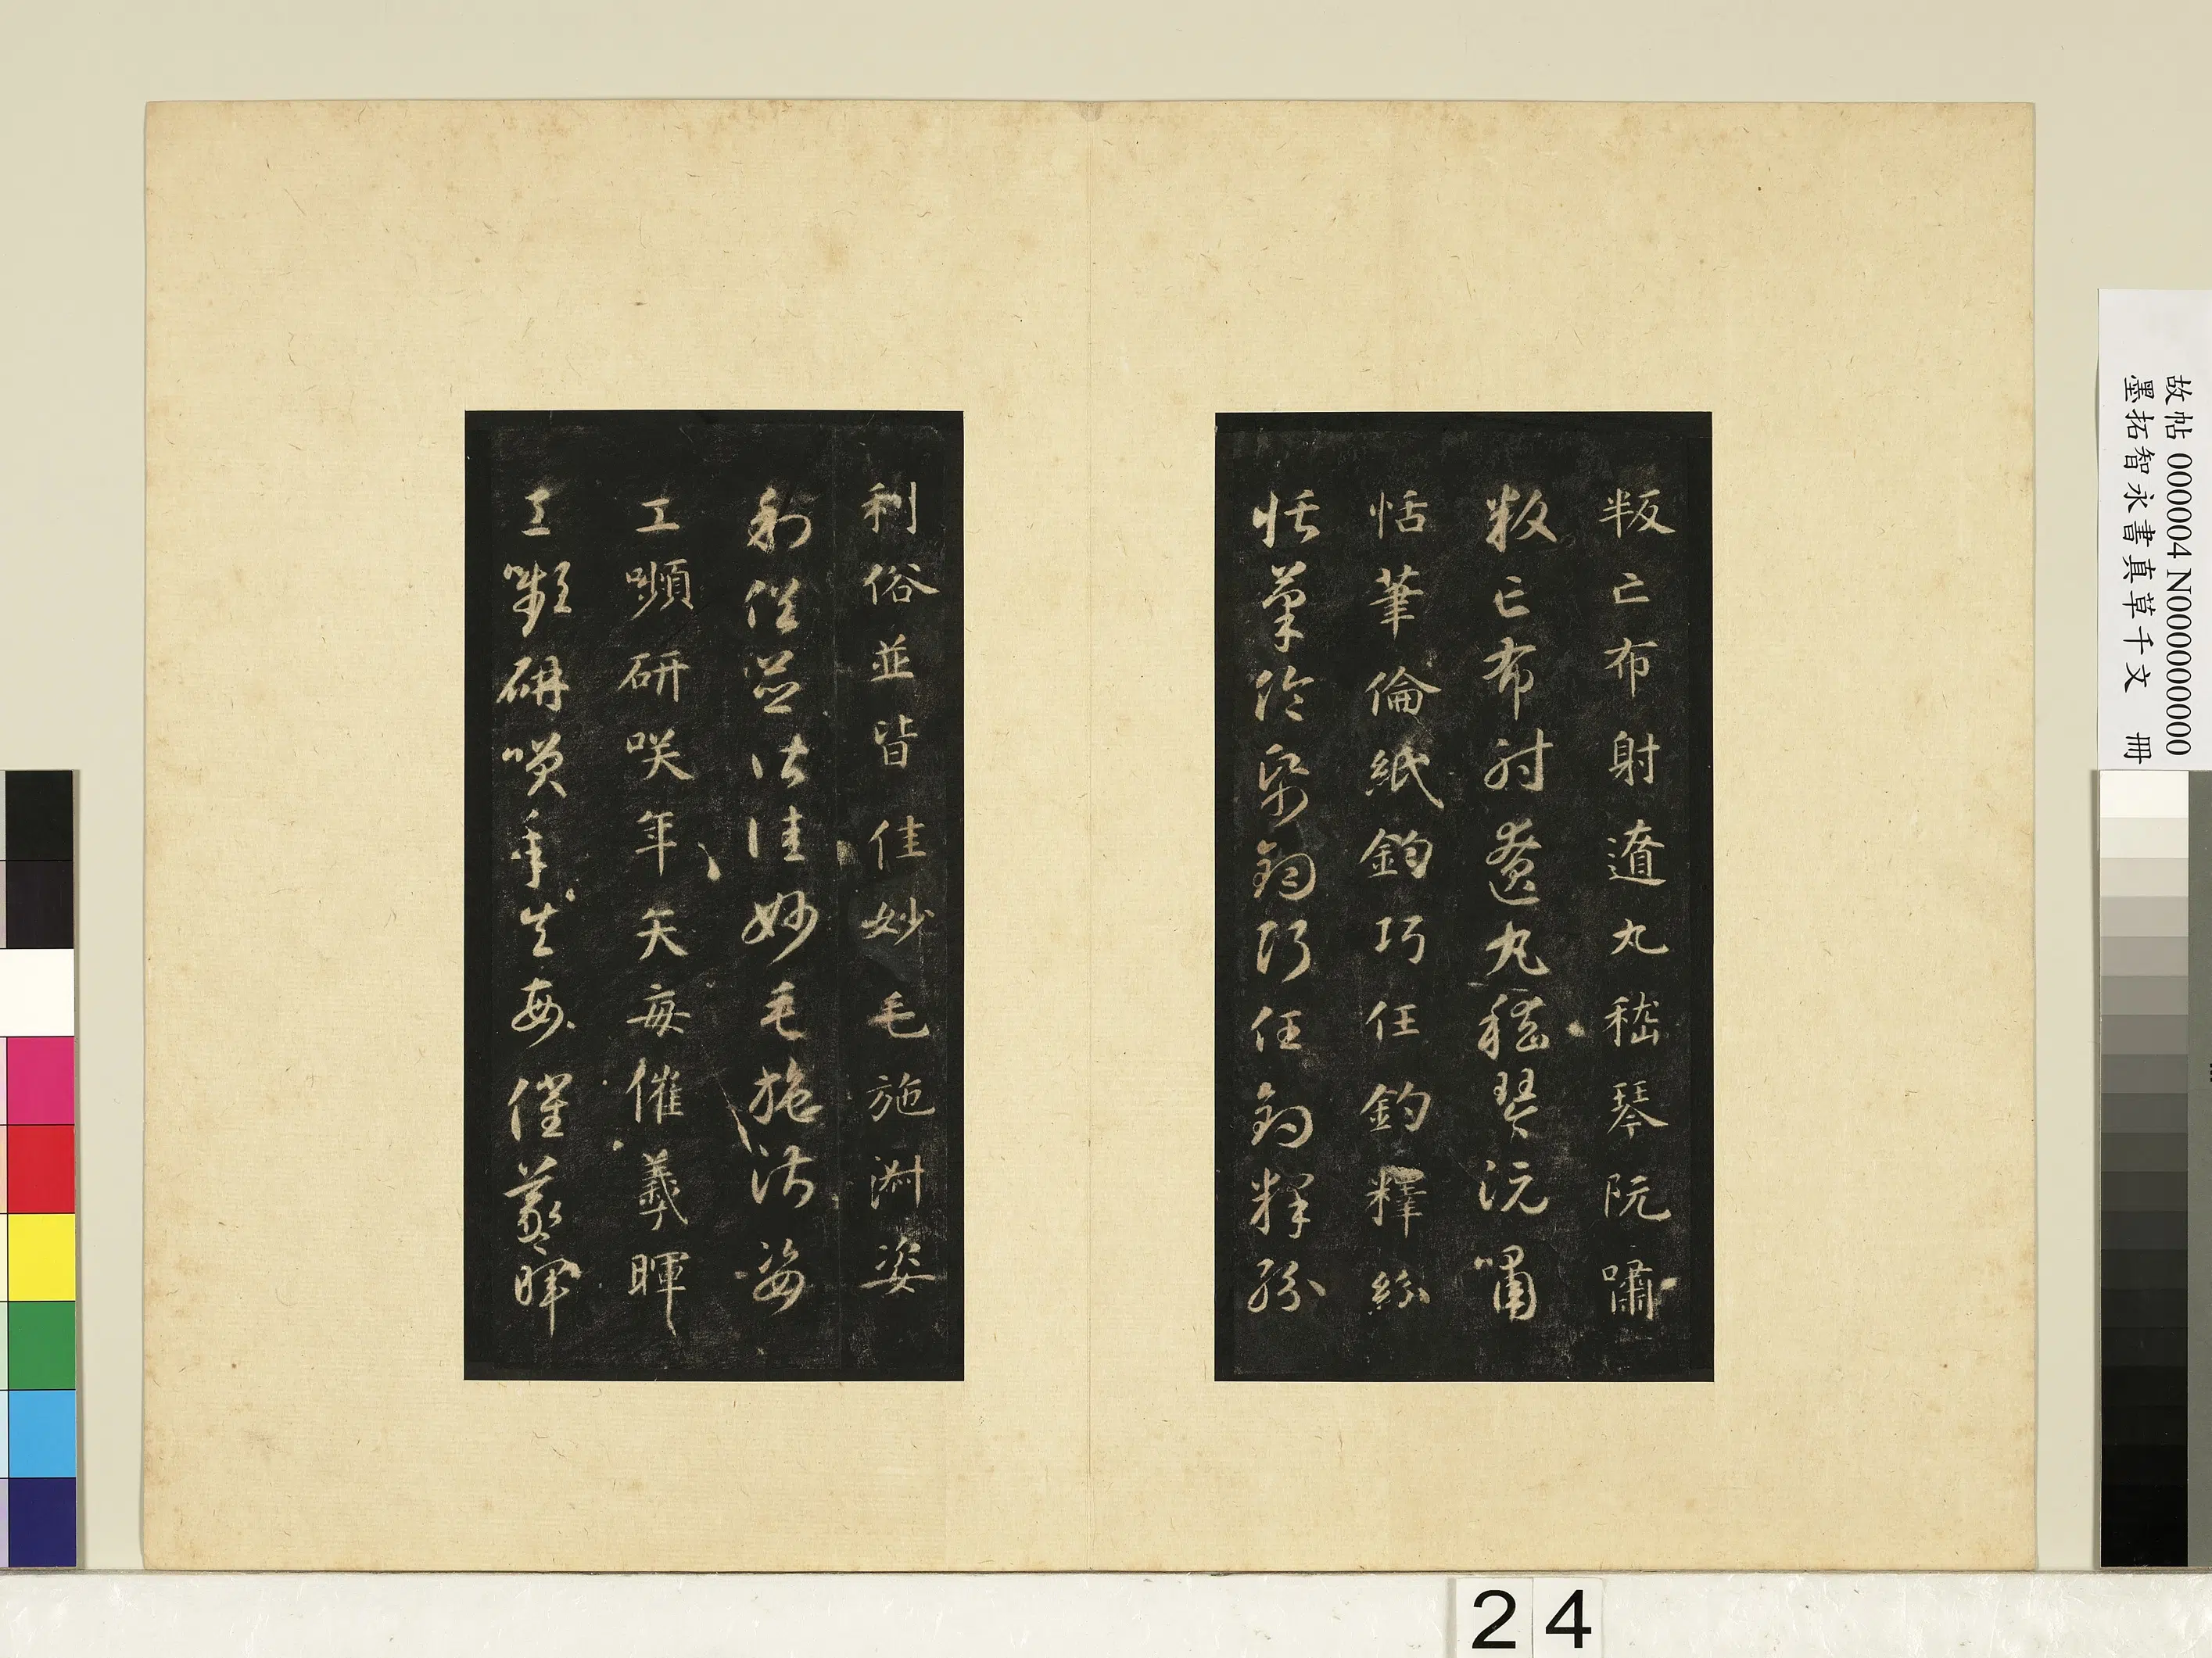 叛亡布射遼丸嵇琴阮嘯
叛亡布射遼丸嵇琴阮嘯
恬筆倫紙鈞巧任釣釋紛
恬筆倫紙鈞巧任釣釋紛
利俗並皆佳妙毛施淑姿
利俗並皆佳妙毛施淑姿
工嚬研咲年矢每催羲暉
工嚬研笑年矢每催羲暉
故帖 000004 N000000000
墨拓智永書真草千文 冊
24